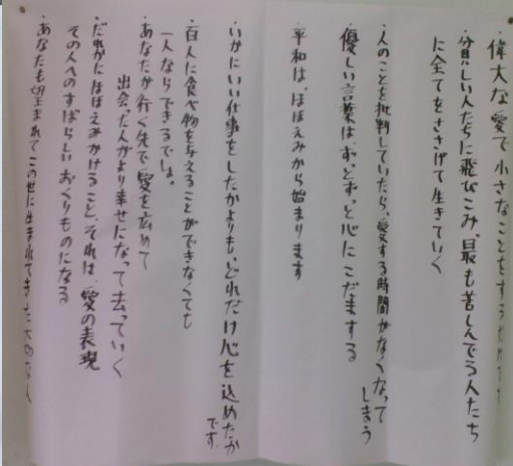 ・偉大な愛で小さなことをする
・貧しい人たちに飛びこみ、最も苦しんでる人たち
に全てをささげて生きていく
・人のことを批判していたら、愛する時間がなくなって
しまう
・優しい言葉は、ずっとずっと心にこだまする
・平和は、ほほえみから始まります
・いかにいい仕事をしたかよりも、どれだけ心を込めたか
です。
・百人に食べ物を与えることができなくても
一人ならできるでしょ。
・あなたが行く先で愛を広めて
出会った人がより幸せになって去っていく
・だれかにほほえみかけること、それは愛の表現
その人へのすばらしいおくりものになる
・あなたも望まれてこの世に生まれてきた大切な